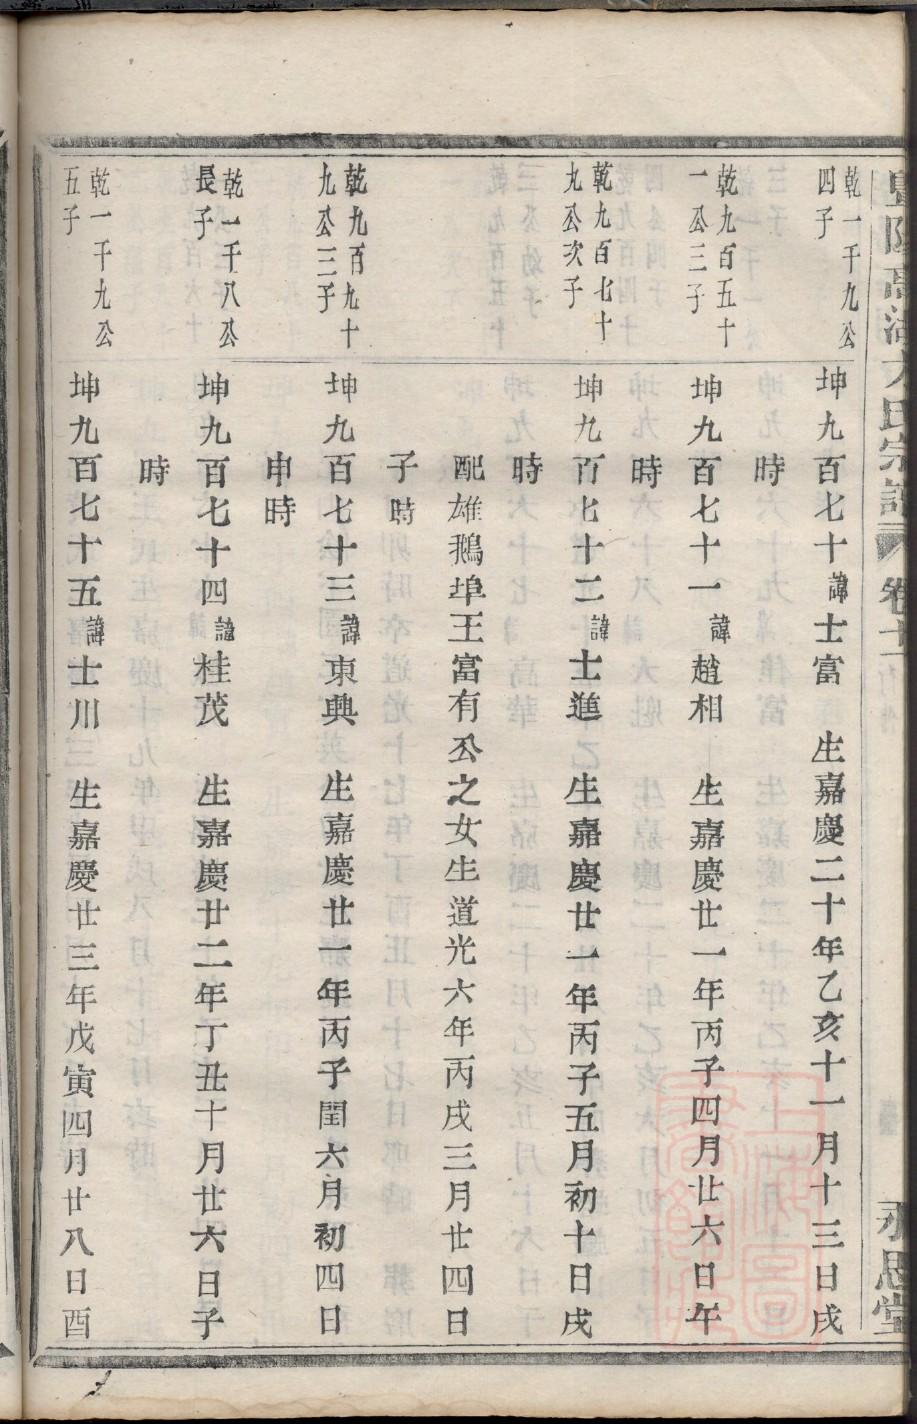 乾一千九公
四子
坤九百七十諱士富　生嘉慶二十年乙亥十一月十三日戌
時
乾九百五十
一公三子
坤九百七十一諱趙相　生嘉慶廿一年丙子四月廿六日午
時
乾九百七十
九公次子
坤九百七十二諱士進　生嘉慶廿一年丙子五月初十日戌
時
配雄鵝埠王富有公之女生道光六年丙戌三月廿四日
子時
乾九百九十
九公三子
坤九百七十三諱東興　生嘉慶廿一年丙子閏六月初四日
申時
乾一千八公
長子
坤九百七十四諱桂茂　生嘉慶廿二年丁丑十月廿六日子
時
乾一千九公
五子
坤九百七十五諱士川　生嘉慶廿三年戊寅四月廿八日酉
氏宗譜　卷十
永思堂